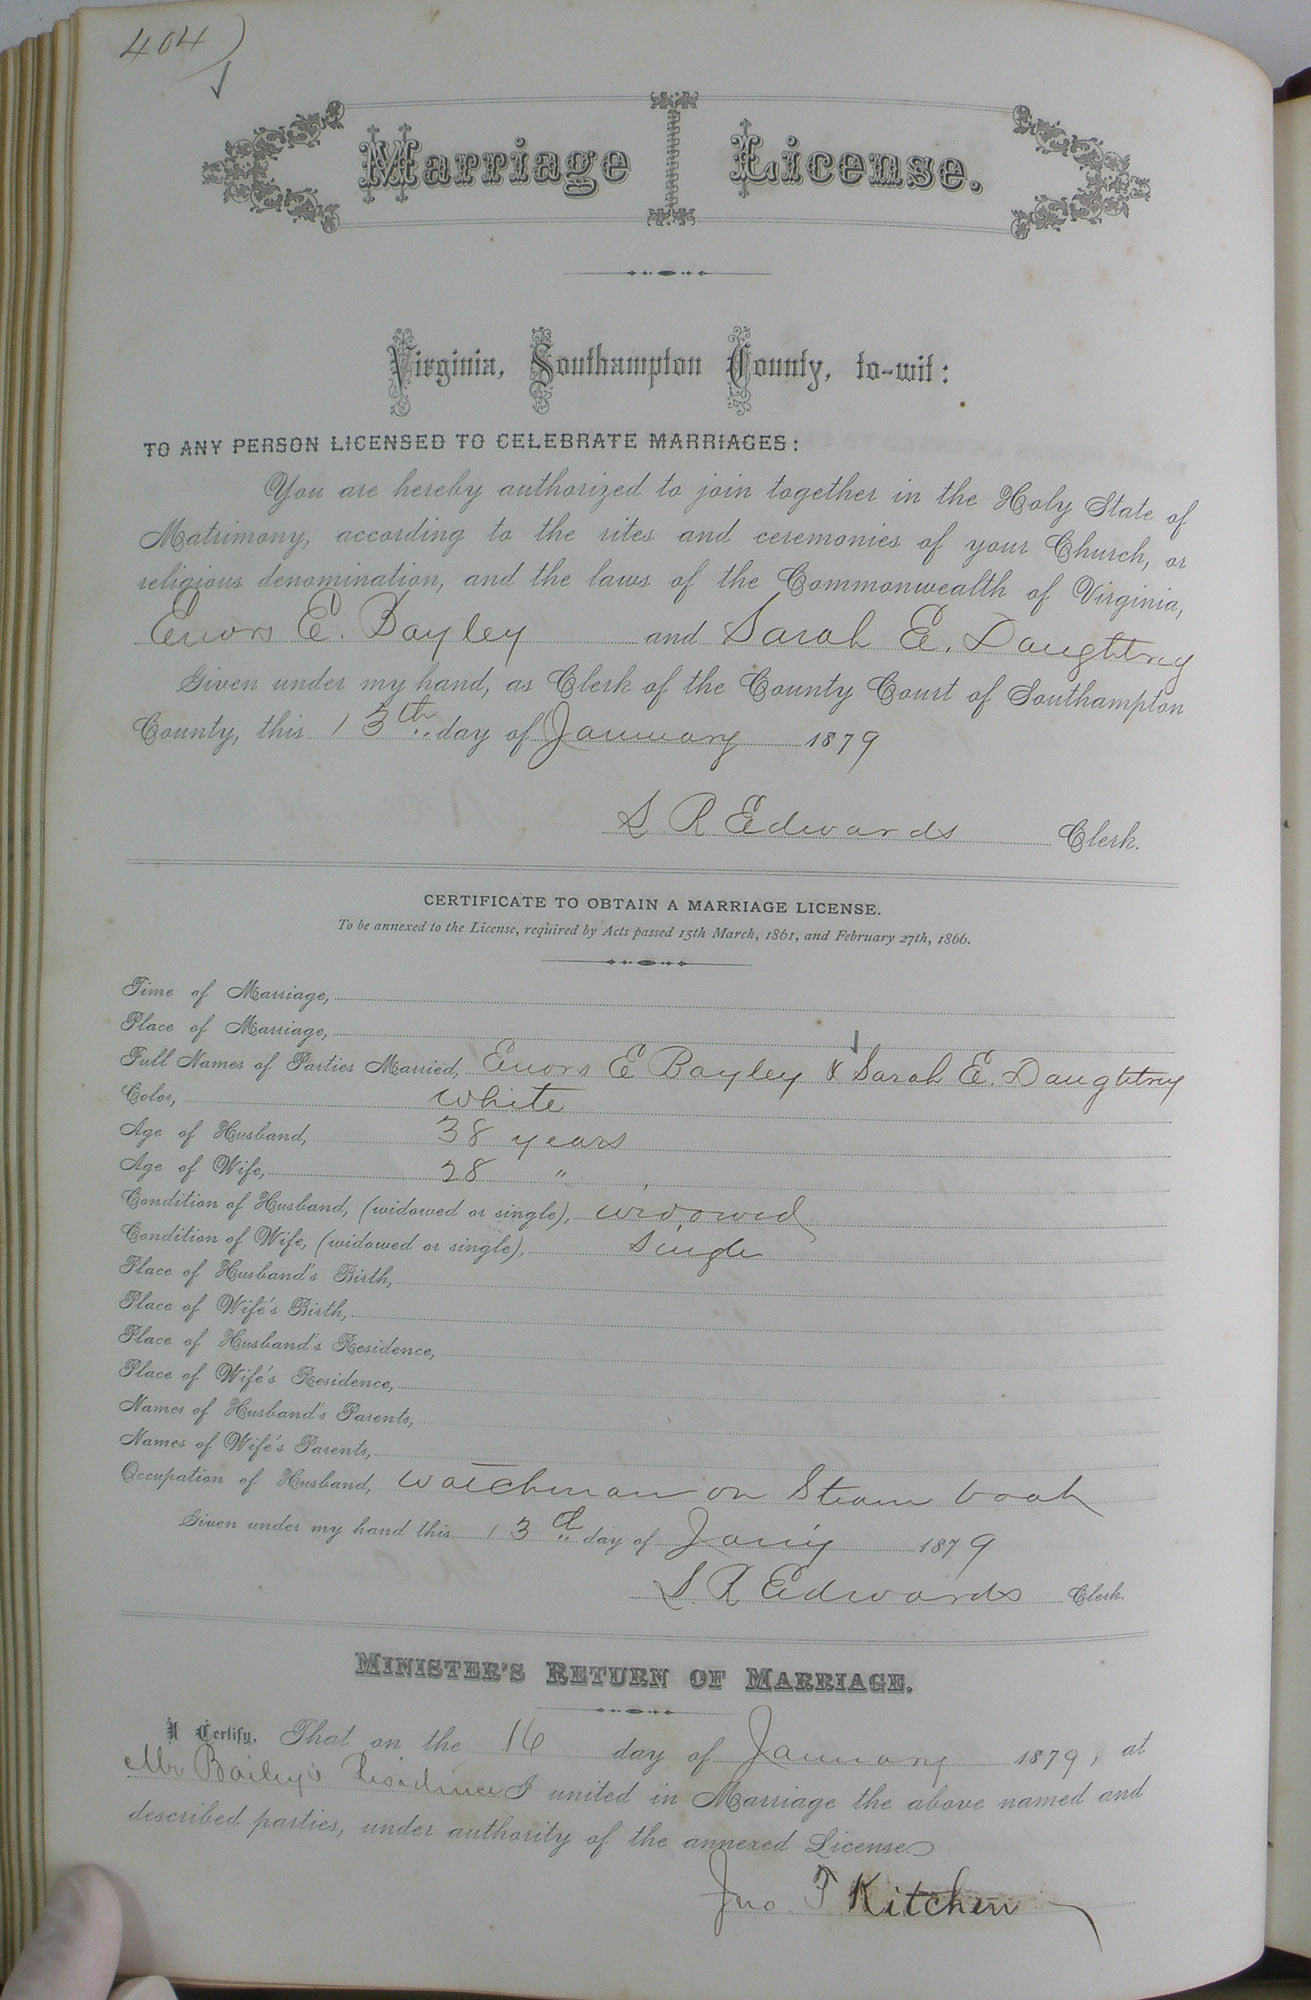 404)
Marriage License.
Virginia, Southampton County, to-wit:
TO ANY PERSON LICENSED TO CELEBRATE MARRIAGES:
You are hereby authorized to join together in the Holy State of
Matrimony, according to the rites and ceremonies of your Church, or
religious denomination, and the laws of the Commonwealth of Virginia,
Enors E. Bayley and Sarah E. Daughtrey
Given under my hand, as Clerk of the County Court of Southampton
County, this 13th day of January 1879
L R Edwards Clerk.
CERTIFICATE TO OBTAIN A MARRIAGE LICENSE.
To be annexed to the License, required by Acts passed 15th March, 1861, and February 27th, 1866.
Time of Marriage,
Place of Marriage,
Full Names of Parties Married, Enors E Bayley & Sarah E. Daughtrey
Color, white
Age of Husband, 38 years
Age of Wife, 28 "
Condition of Husband, (widowed or single), widowed
Condition of Wife, (widowed or single), Single
Place of Husband's Birth,
Place of Wife's Birth,
Place of Husband's Residence,
Place of Wife's Residence,
Names of Husband's Parents,
Names of Wife's Parents,
Occupation of Husband, Watchman on Steam boat
Given under my hand this 13th day of Jany 1879
L. R Edwards Clerk.
MINISTER'S RETURN OF MARRIAGE.
I Certify, That on the 16 day of January 1879, at
Mr Bailey's Residence I united in Marriage the above named and
described parties, under authority of the annexed License.
Jno. T Kitchen